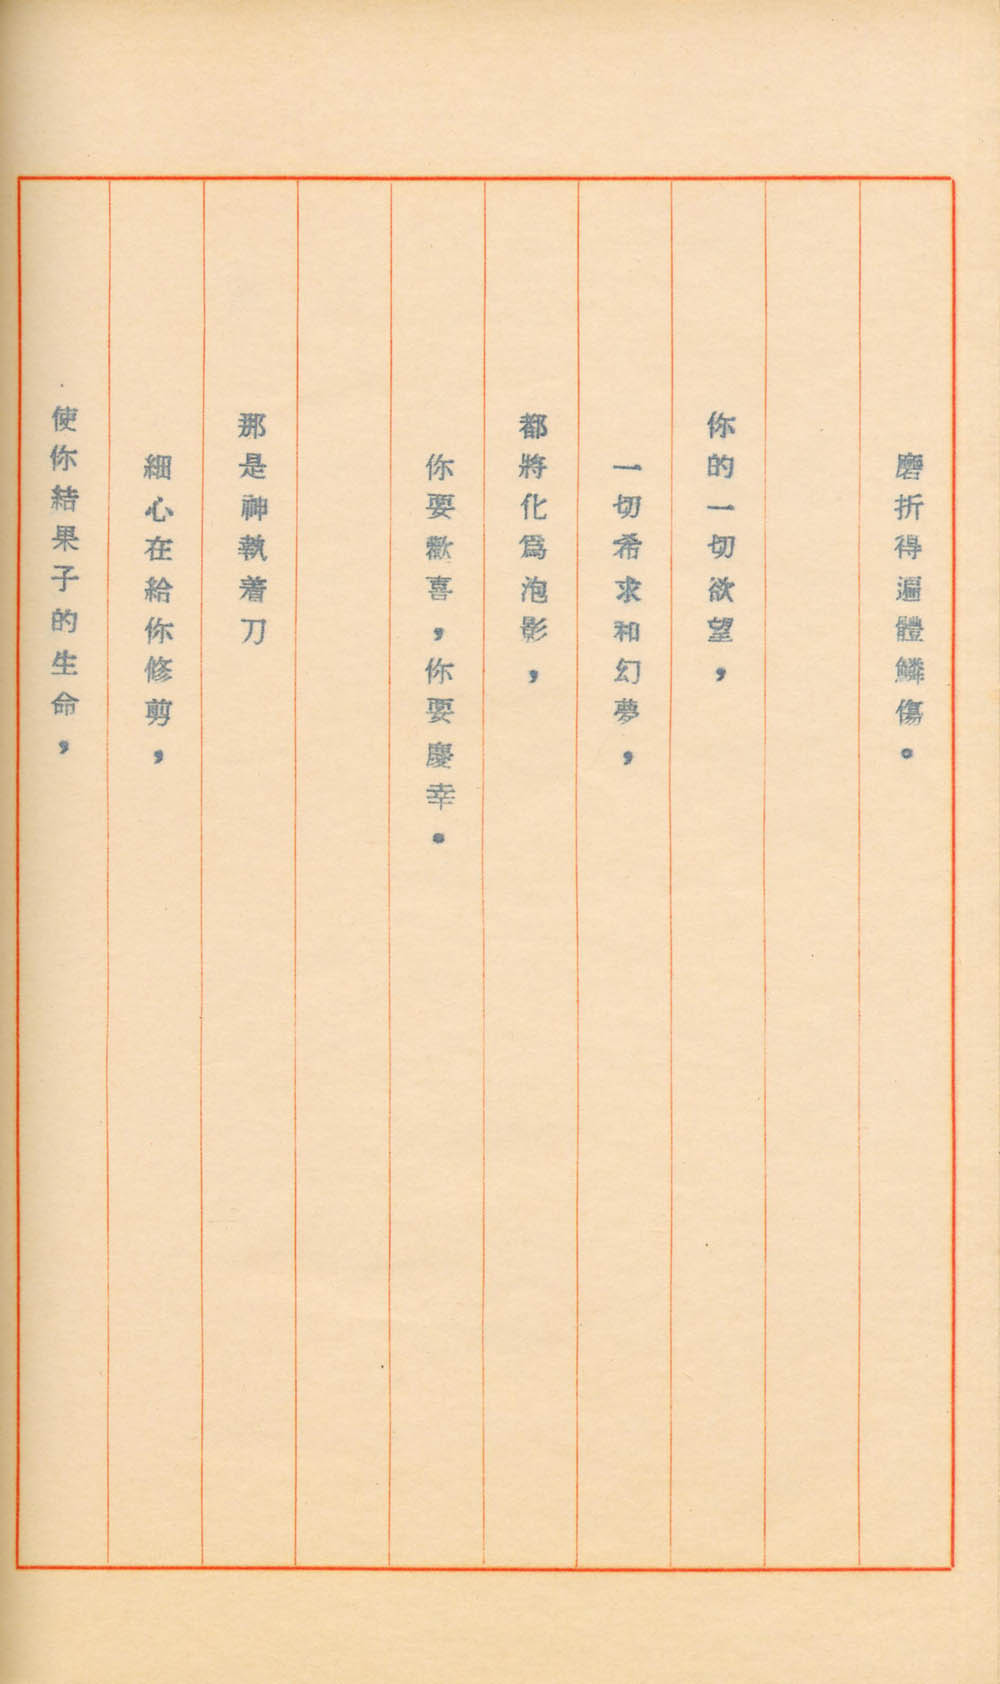 磨折得遍體鱗傷。
你的一切欲望，
一切希求和幻夢，
都將化爲泡影，
你要歡喜，你要慶幸。
那是神執着刀
細心在給你修剪，
使你結果子的生命，